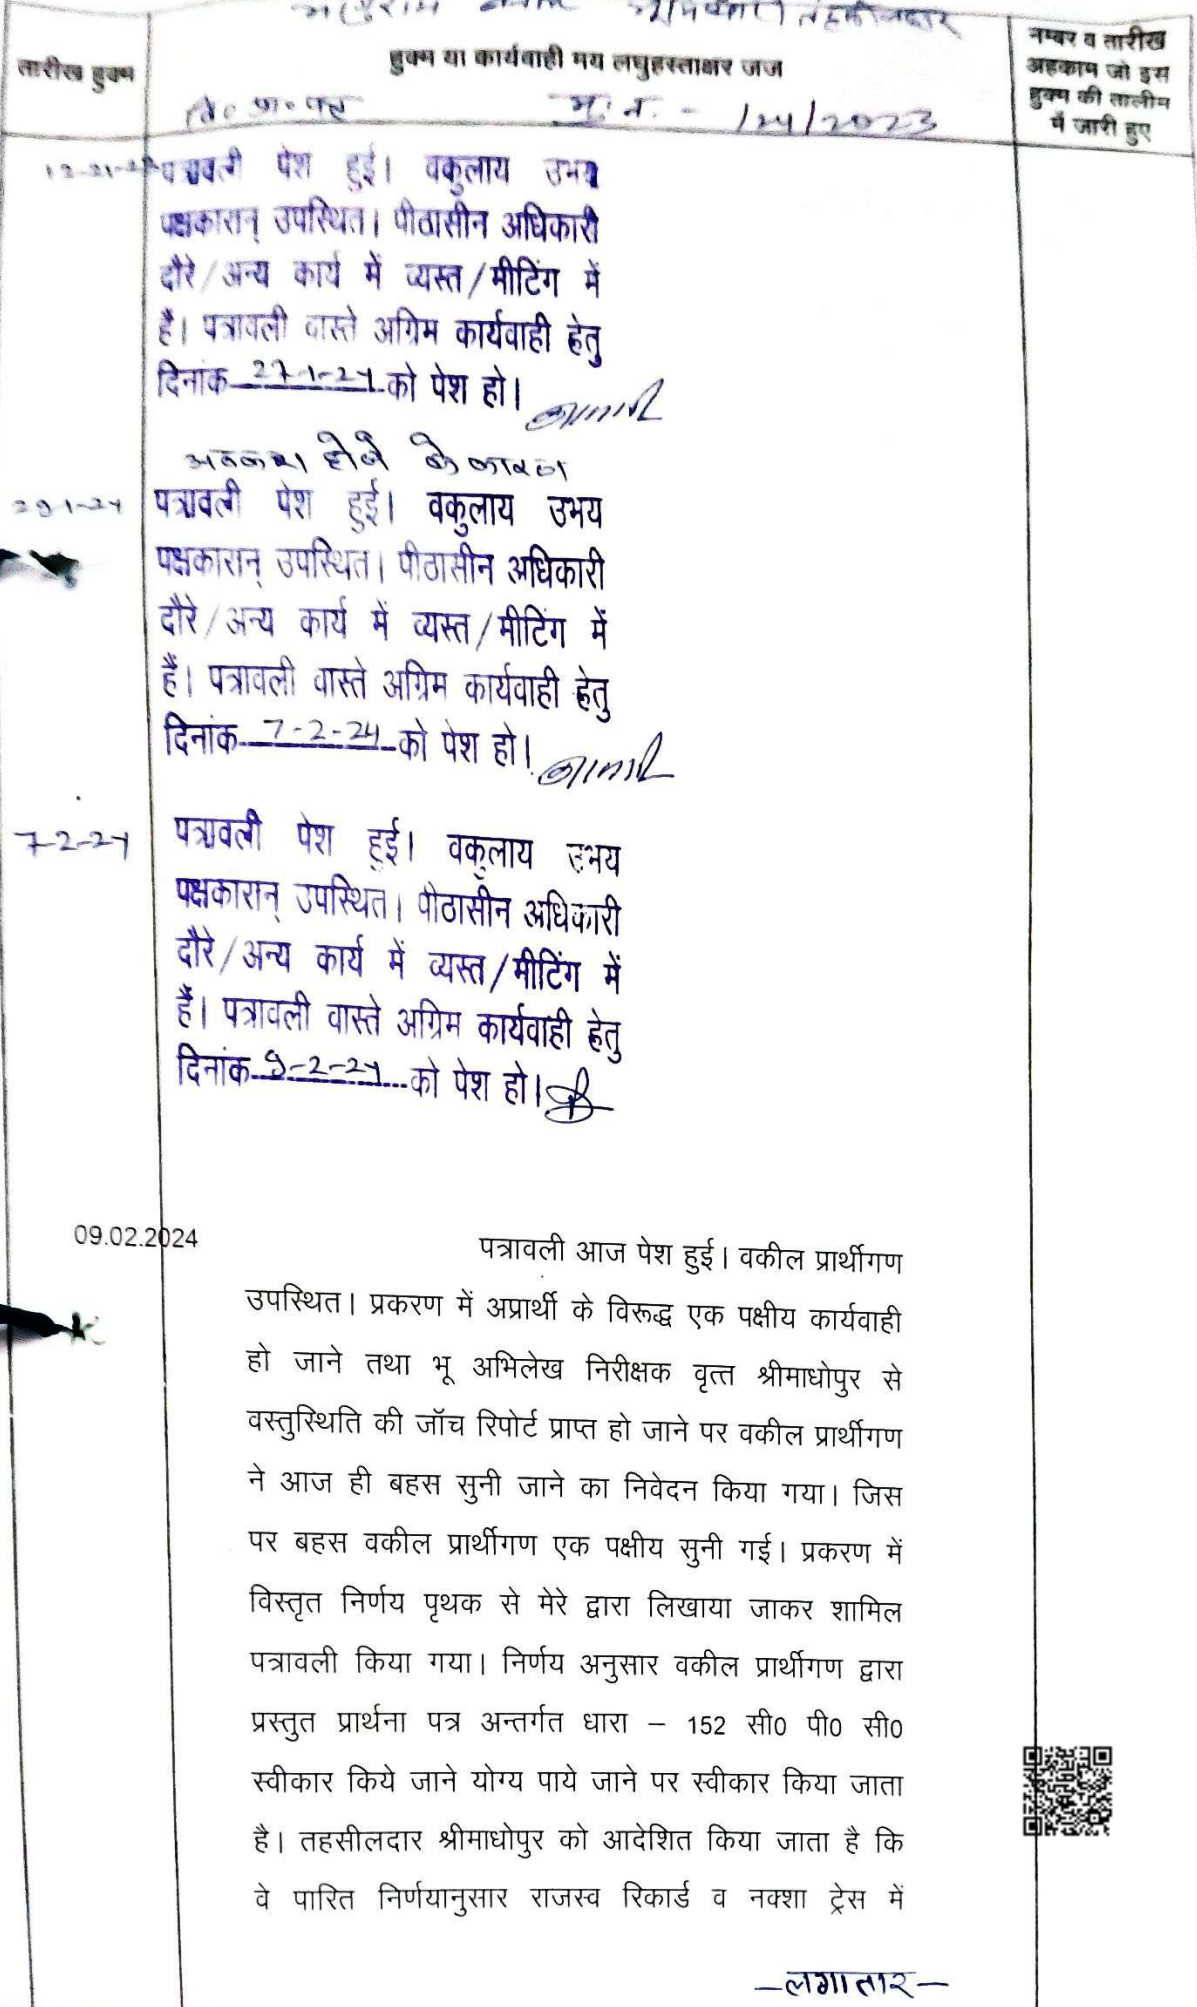 तहसीलदार
तारीख हुक्म
हुक्म या कार्यवाही मय लघुहस्ताक्षर जज
नम्बर व तारीख
अहकाम जो इस
हुक्म की तालीम
में जारी हुए
वि० प्रा० पत्र मु. न. - /124/2023
पत्रावली पेश हुई। वकुलाय उभय
पक्षकारान् उपस्थित। पीठासीन अधिकारी
दौरे/अन्य कार्य में व्यस्त/मीटिंग में
है। पत्रावली वास्ते अग्रिम कार्यवाही हेतु
दिनांक 27-1-24 को पेश हो।
अवकाश होने के कारण
29-1-24 पत्रावली पेश हुई। वकुलाय उभय
पक्षकारान् उपस्थित। पीठासीन अधिकारी
दौरे/अन्य कार्य में व्यस्त/मीटिंग में
हैं। पत्रावली वास्ते अग्रिम कार्यवाही हेतु
दिनांक 7-2-24 को पेश हो।
7-2-24 पत्रावली पेश हुई। वकुलाय उभय
पक्षकारान् उपस्थित। पीठासीन अधिकारी
दौरे/अन्य कार्य में व्यस्त/मीटिंग में
हैं। पत्रावली वास्ते अग्रिम कार्यवाही हेतु
दिनांक 9-2-24 को पेश हो।
09.02.2024
पत्रावली आज पेश हुई। वकील प्रार्थीगण
उपस्थित। प्रकरण में अप्रार्थी के विरूद्ध एक पक्षीय कार्यवाही
हो जाने तथा भू अभिलेख निरीक्षक वृत्त श्रीमाधोपुर से
वस्तुस्थिति की जॉच रिपोर्ट प्राप्त हो जाने पर वकील प्रार्थीगण
ने आज ही बहस सुनी जाने का निवेदन किया गया। जिस
पर बहस वकील प्रार्थीगण एक पक्षीय सुनी गई। प्रकरण में
विस्तृत निर्णय पृथक से मेरे द्वारा लिखाया जाकर शामिल
पत्रावली किया गया। निर्णय अनुसार वकील प्रार्थीगण द्वारा
प्रस्तुत प्रार्थना पत्र अन्तर्गत धारा – 152 सी0 पी0 सी0
स्वीकार किये जाने योग्य पाये जाने पर स्वीकार किया जाता
है। तहसीलदार श्रीमाधोपुर को आदेशित किया जाता है कि
वे पारित निर्णयानुसार राजस्व रिकार्ड व नक्शा ट्रेस में
—लगातार—